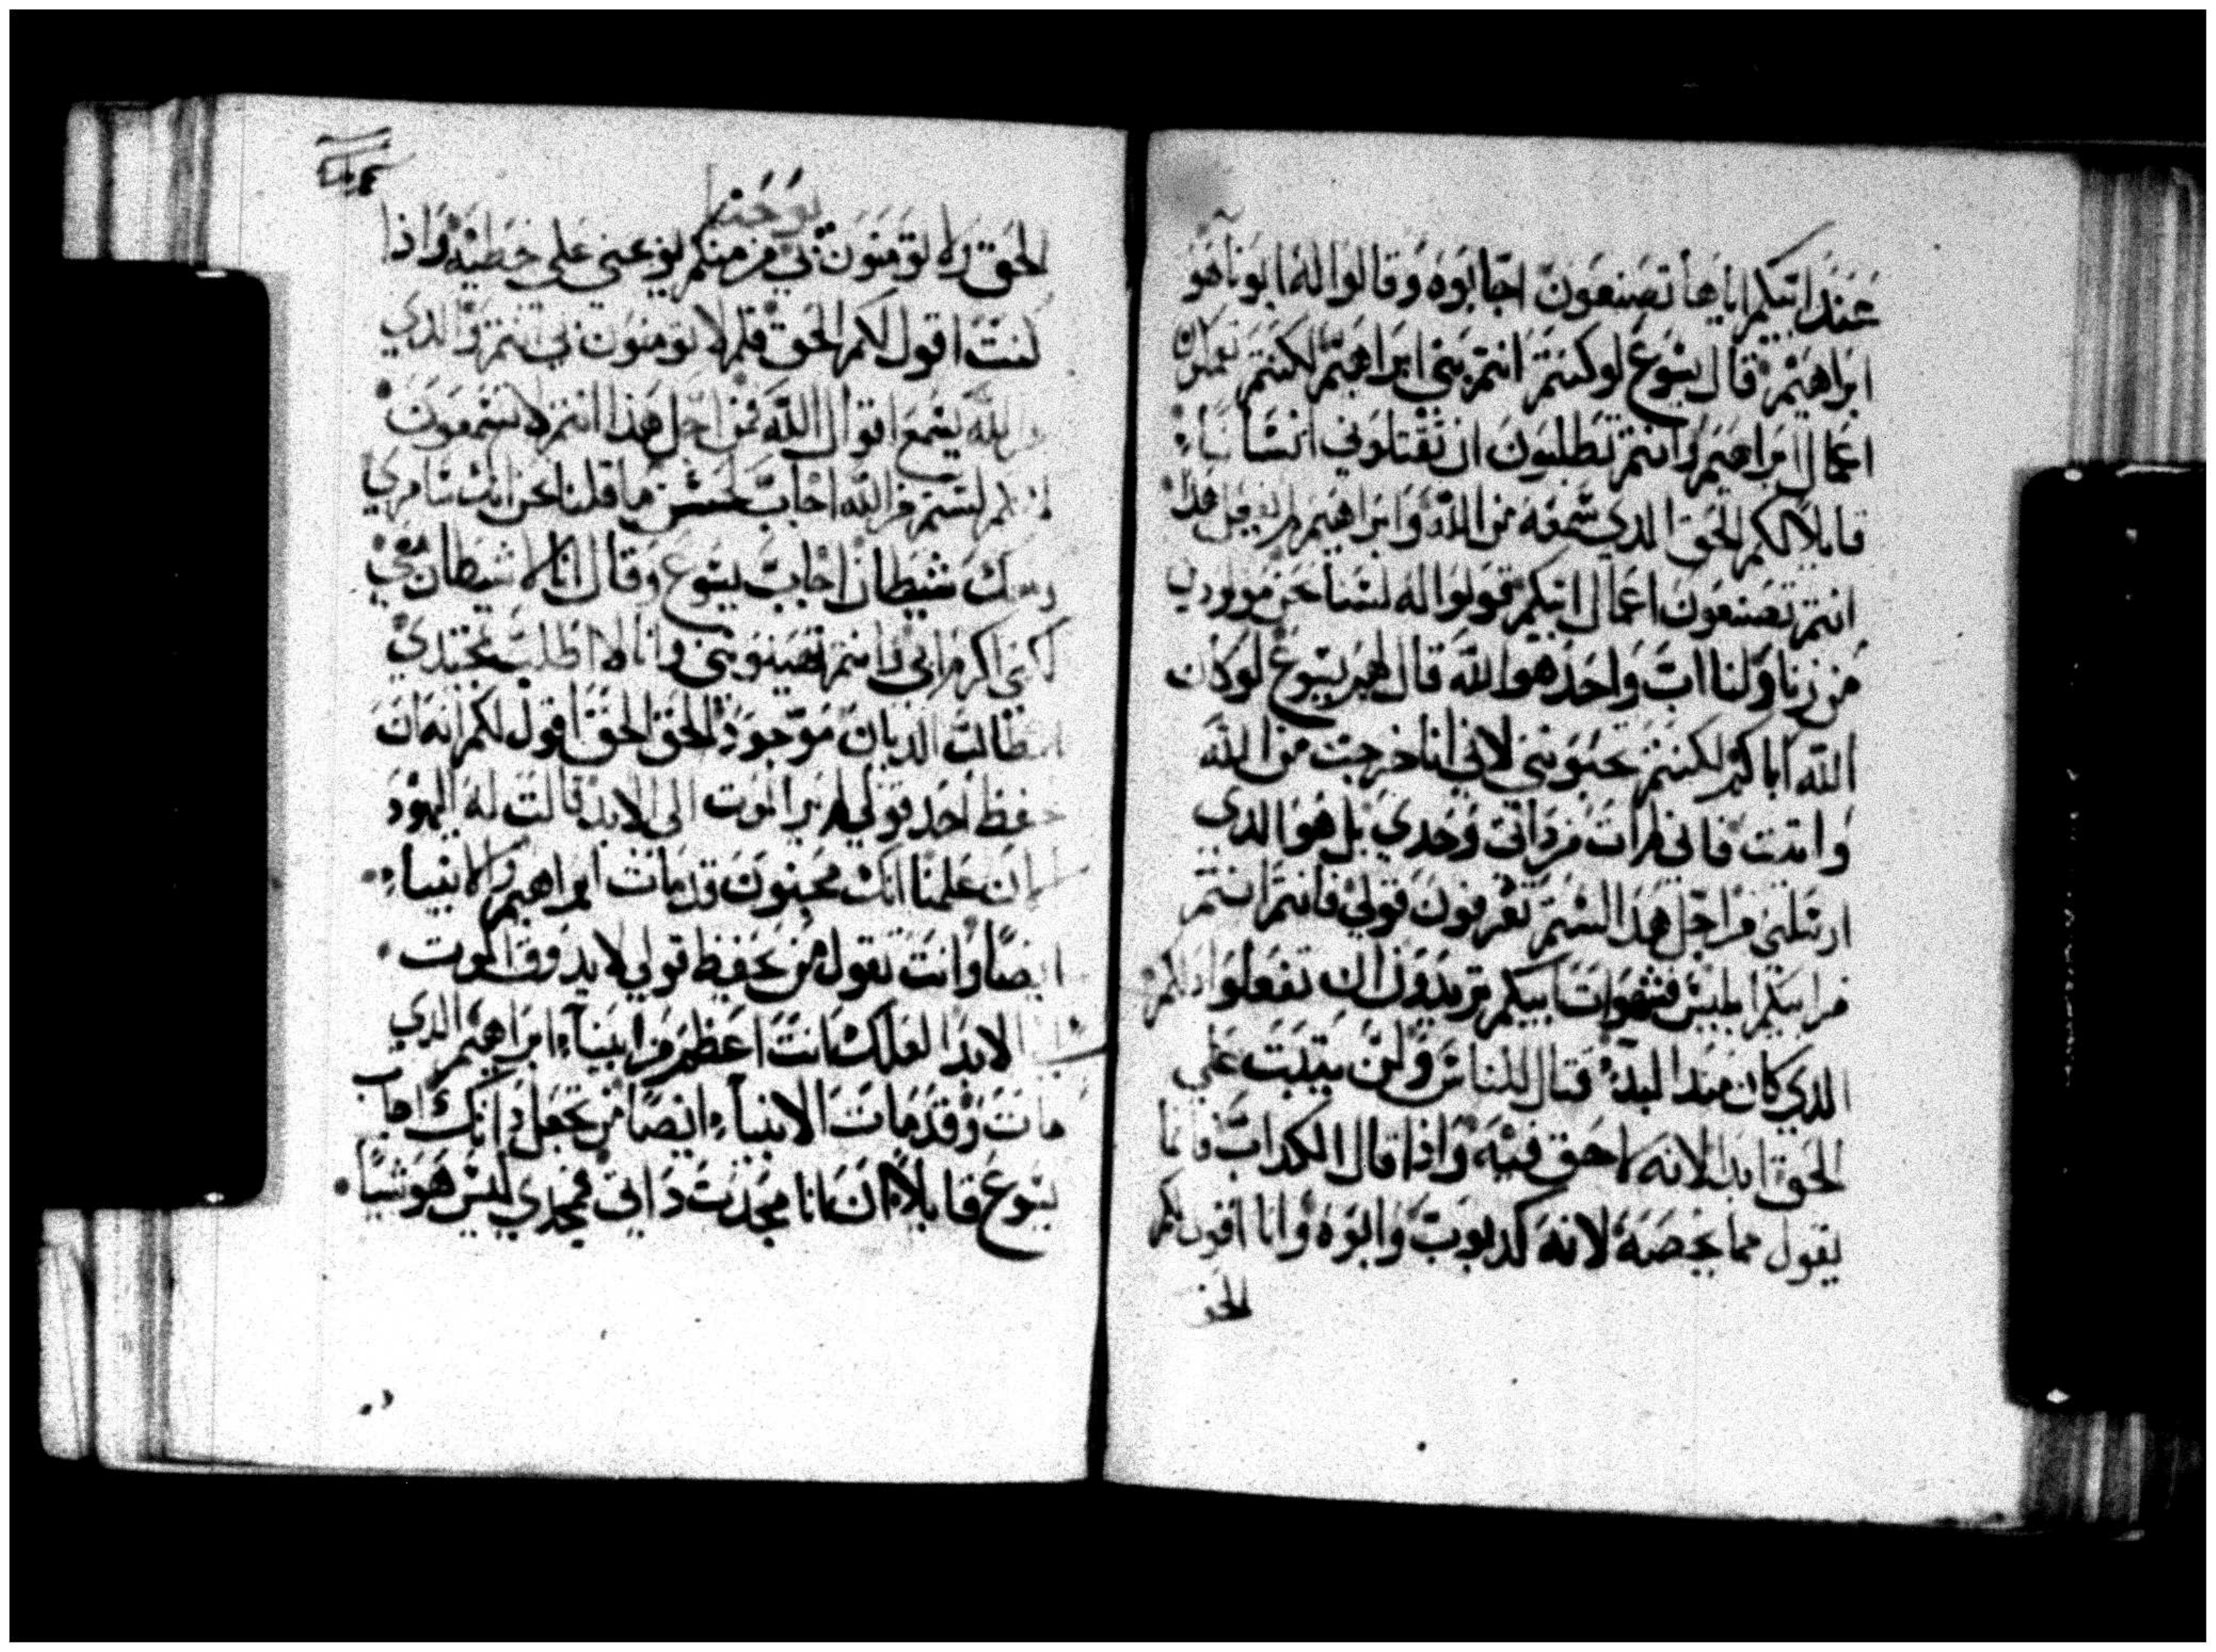 عند ابيكم اياها تصنعون اجابوه وقالوا له ابونا هو
ابراهيم قال يسوع لو كنتم انتم بني ابراهيم لكنتم تعملون
اعمال ابراهيم وانتم تطلبون ان تقتلوني انسانا
قايلا لكم الحق الدي سمعه من الله وابراهيم لم يفعل هدا
انتم تصنعون اعمال ابيكم قولوا له لسنا نحن مولودين
من زنا ولنا اب واحد هو الله قال لهم يسوع لو كان
الله اباكم لكنتم تحبونني لاني انا خرجت من الله
واتيت فاني لم ات من داتي وحدي بل هو الدي
ارسلني من اجل هدا لستم تعرفون قولي فانتم انتم
من ابيكم ابليس فشهوات ابيكم تريدون ان تفعلوا دلكم
الدي كان مند البدء قتال للناس ولن يتبت علي
الحق ابدا لانه لا حق فيه واذا قال الكداب فانما
يقول مما يخصه لانه كدوب وابوه وانا اقول لكم
الحق
يوحنا
الحق ولا تومنون بي من منكم يوعني على خطيه واذا
كنت اقول لكم الحق فلم لا تومنون بي انتم والدي
من الله يسمع اقوال الله فمن اجل هدا انتم لا تسمعون
لانكم لستم من الله اجاب ما قلنا نحن انك سامري
وبك شيطان اجاب يسوع وقال انا لا شيطان بي
لكني اكرم ابي وانتم تهينونني وانا لا اطلب مجدي
الطالب الديان موجود الحق الحق اقول لكم انه ان
حفظ احد قولي لم ير الموت الى الابد قالت له اليهود
الان علمنا انك مجنون قد مات ابراهيم والانبياء
ايضا وانت تقول من يحفظ قولي لا يدوق الموت
الى الابد العلك انت اعظم من ابينا ابراهيم الدي
مات وقد مات الانبياء ايضا من تجعل دانك اجاب
يسوع قايلا ان انا مجدت داتي فمجدي ليس هو شيا